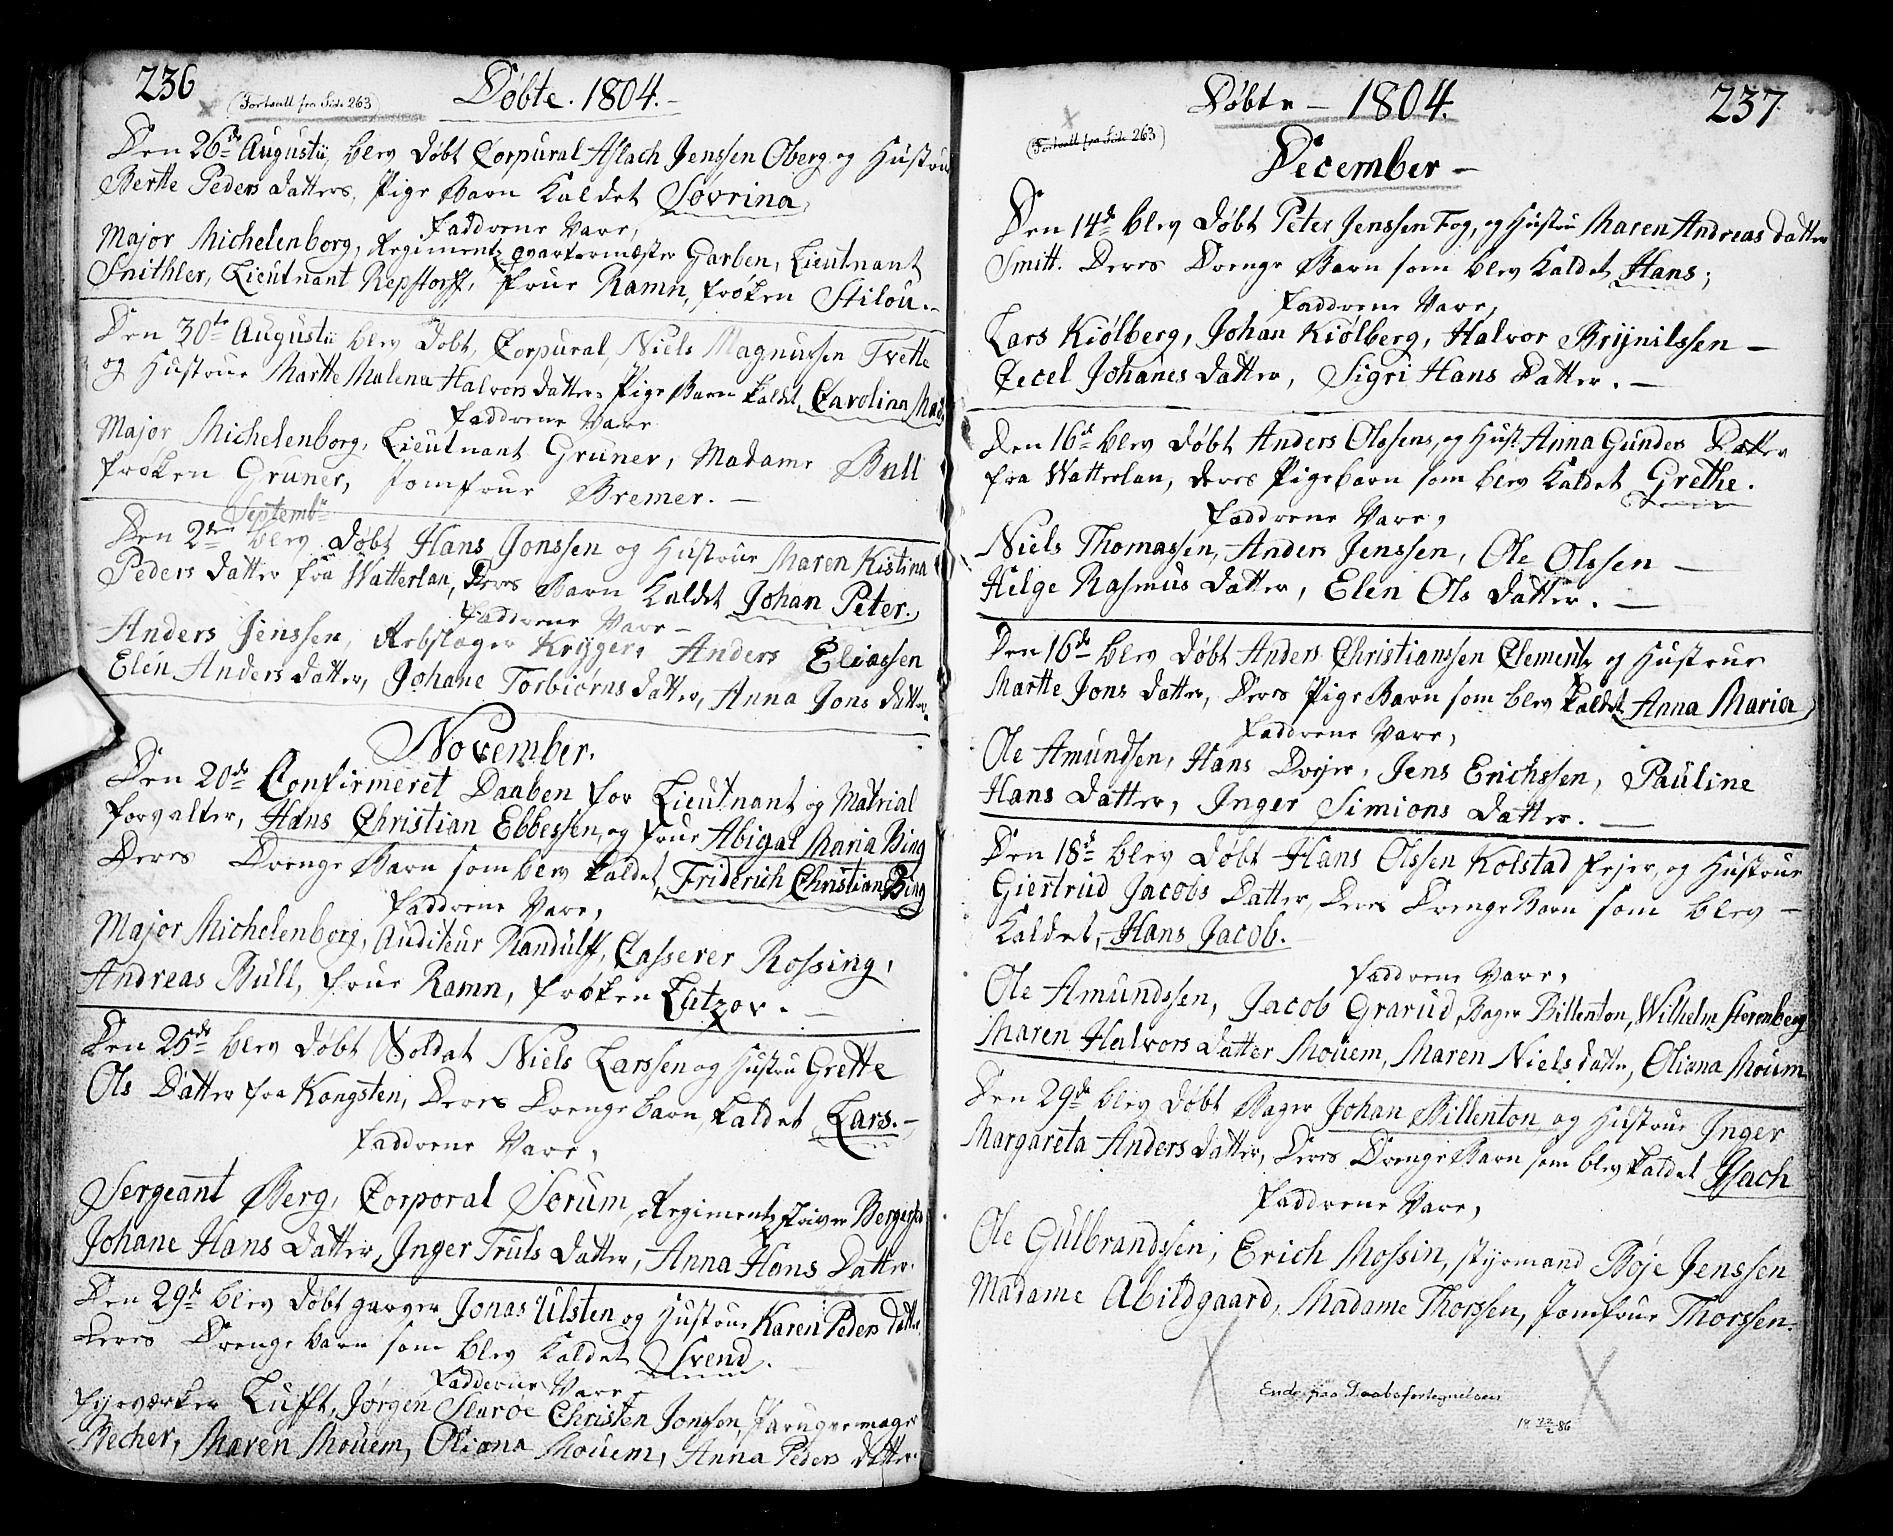 236
(Fortsatt fra Side 263)
Døbte. 1804.
Den 26de Augustii, blev døbt Corpural Aslach Jenssen Oberg og Hustrue
Berte Peders datters, Pige Barn kaldet Søvrina,
Faddrene Vare,
Major Michelenborg, Regimentz qvartermæster Garben, Lieutnant
Snithler, Lieutnant Repstorff, frue Ramn, frøken Stilou.
Den 30te Augustii blev døbt, Corpural, Niels Magnussen Tvette
og Hustrue Martte Malena Halvors datters Pige Barn kaldet Carolina Mad
Faddrene Vare
Major Michelenborg, Lieutnant Gruner, Madame Bull
frøken Gruner, Jomfrue Bremer.
Septembr
Den 2den blev døbt Hans Jonssen og Hustrue Maren Kistina
Peders datter fra Watterlan, deres Barn kaldet Johan Peter.
Faddrene Vare
Anders Jenssen, Rebslager Kryger, Anders Eliassen
Elen Anders datter, Johane Torbiørns datter, Anna Jons datter
November.
Den 20de Confirmeret Daaben for Lieutnant og Matrial
forvalter, Hans Christian Ebbessen, og frue Abigal Maria Bing
Deres Drenge Barn som blev kaldet, Friderich Christian Bing
Faddrene Vare,
Major Michelenborg, Auditeur Randulff, Casserer Rossing,
Andreas Bull, frue Ramn, frøken Lützov.
Den 25de blev døbt Soldat Niels Larssen og Hustru Grette
Ols Datter fra Kongsten, Deres Drenge barn kaldet Lars.
Faddrene Vare,
Sergeant Berg, Corporal Sorum, Regimentzskriver
Johane Hans datter, Inger Truls datter, Anna Hans Datter.
Den 29de blev døbt garver Jonas Ulsten og Hustrue Karen Peders datter
deres Drenge barn som blev kaldet Svend.
Fadderne Vare
fyrværker Lufft, Jørgen Christen Jonssen, Parugvemager
Becher, Maren Mouem, Oliana Mouem, Anna Peders datter.
Døbte 1804.
237
(Fortsatt fra Side 263)
December
Den 14de blev døbt Peter Jenssen Fog, og Hustru Maren Andreas datter
Smitt. Deres Drenge Barn som blev kaldet Hans;
Faddrene Vare,
Lars Kiølberg, Johan Kiølberg, Halvor Brynilssen
Cecel Johanes datter, Sigri Hans Datter.
Den 16de blev døbt Anders Olssens, og Hust. Anna Gunders Datter
fra Watterlan, deres Pigebarn som blev kaldet Grethe.
Faddrene Vare,
Niels Thomassen, Anders Jenssen, Ole Olssen
Helge Rasmus datter, Elen Ols datter.
Den 16de blev døbt Anders Christianssen Clementz og Hustrue
Martte Jons datter, Deres Pige Barn som blev kaldet Anna Maria
Faddrene Vare,
Ole Amundsen, Hans Drejer, Jens Erichssen, Pauline
Hans datter, Inger Simions datter.
Den 18de blev døbt Hans Olssen Kolstad fejer, og Hustrue
Giertrud Jacobs Datter, Deres Drenge Barn som blev
kaldet, Hans Jacob.
Faddrene Vare,
Ole Amundssen, Jacob Grarud, Bager Billenton, Wilhelm Sterenberg
Maren Halvors datter Mouem, Maren Niels datter, Oliana Mouem
Den 29de blev døbt Bager Johan Billenton, og Hustrue Inger
Margareta Anders datter, Deres Drenge Barn som blev kaldet Isach
Faddrene Vare,
Ole Gulbrandssen, Erich Mossin, styrmand Bøje Jenssen
Madame Abildgaard, Madame Thorssen, Jomfrue Thorssen.
Ende paa Daabsfortegnelsen